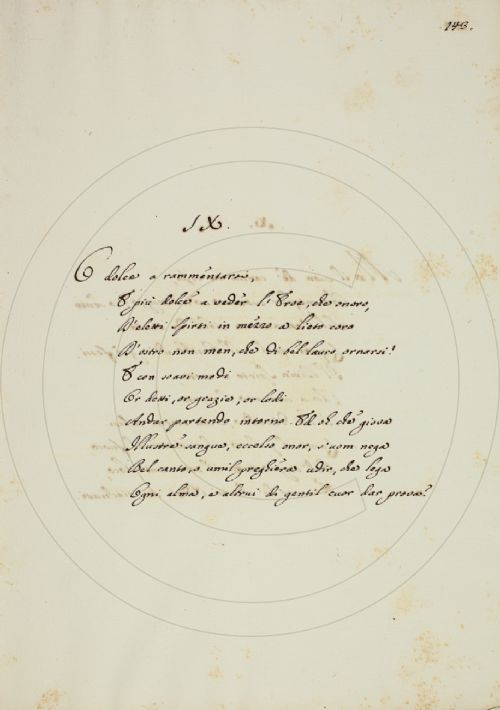 143.
IX.
O dolce a rammentarsi,
E più dolce a veder l'Eroe, che onoro,
D'eletti spirti in mezzo a lieto coro
D'ostro non men, che di bel lauro ornarsi!
E con soavi modi
Or detti, or grazie, or lodi
Andar partendo intorno. Ed oh che giova
Illustre sangue, eccelso onor, s'uom nega
Bel canto, o umil preghiera udir, che lega
Ogni alma, e altrui di gentil cuor dar prova?